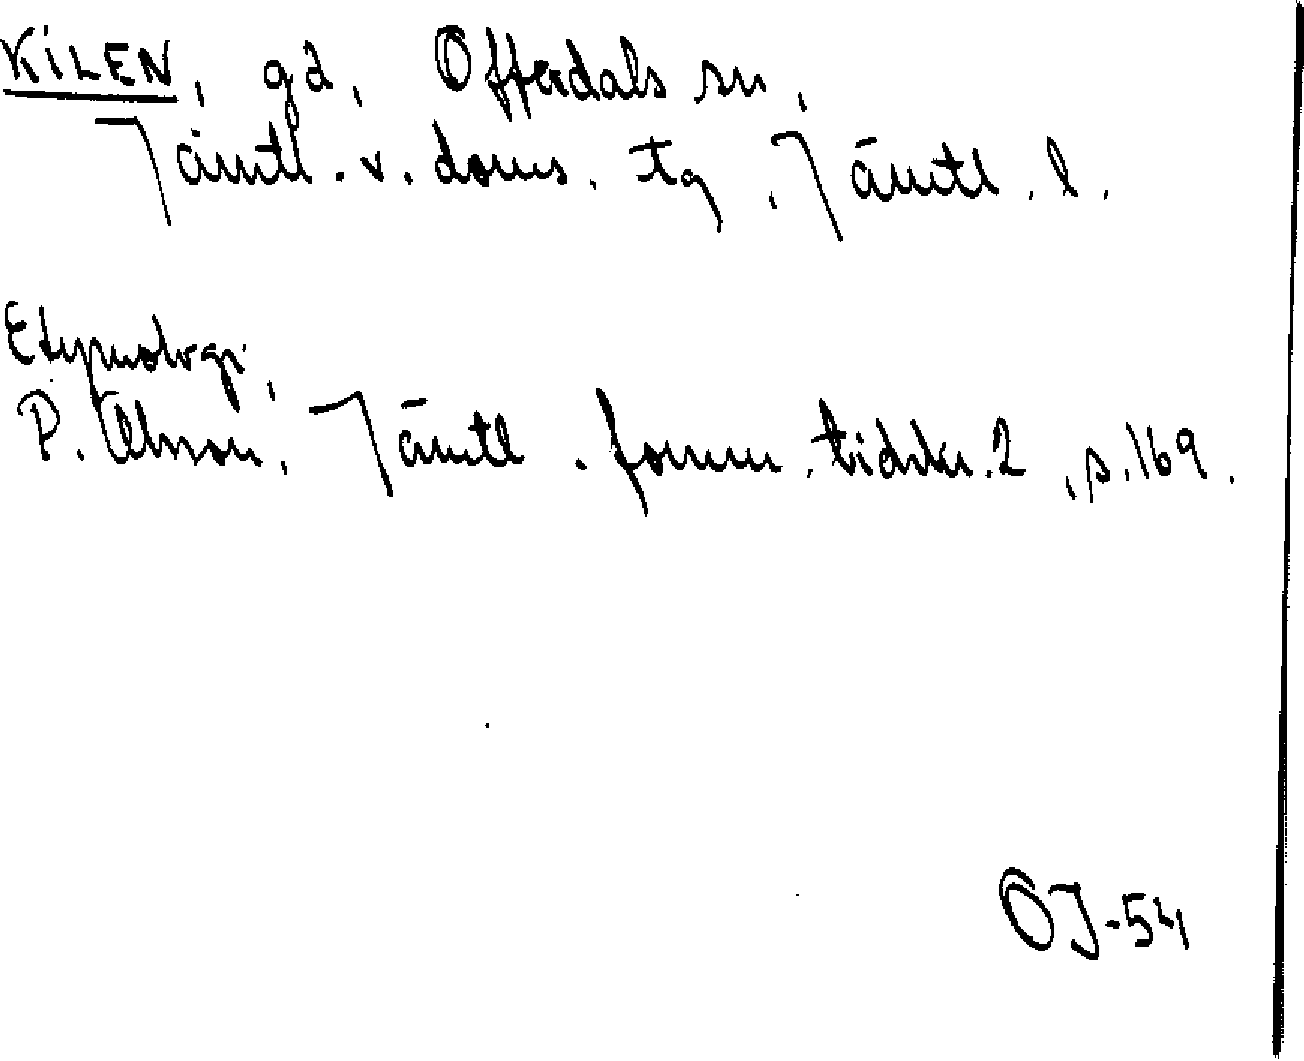 KILEN, gd, Offerdals sn,
Jämtl. v. doms. tg, Jämtl. l.
Etymologi,
P. Olsson, Jämtl. fornm. tidskr. 2, s. 169.
OJ-54